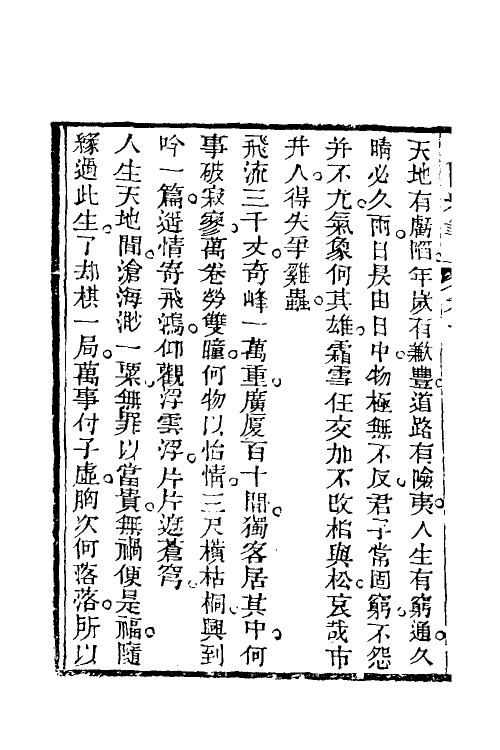 天地有虧陷。年歲有歉豐。道路有險夷。人生有窮通。久
晴必久雨。日昃由日中。物極無不反。君子常固窮。不怨
并不尤。氣象何其雄。霜雪任交加。不改栢與松。哀哉市
井人。得失爭雞蟲。
飛流三千丈。奇峰一萬重。廣厦百十間。獨客居其中。何
事破寂寥。萬卷勞雙瞳。何物以怡情。三尺橫枯桐。興到
吟一篇。逰情寄飛鴻。仰觀浮雲浮。片片遊蒼穹。
人生天地間。滄海渺一粟。無罪以當貴。無禍便是福。隨
緣過此生。了却棋一局。萬事付子虛。胸次何落落。所以